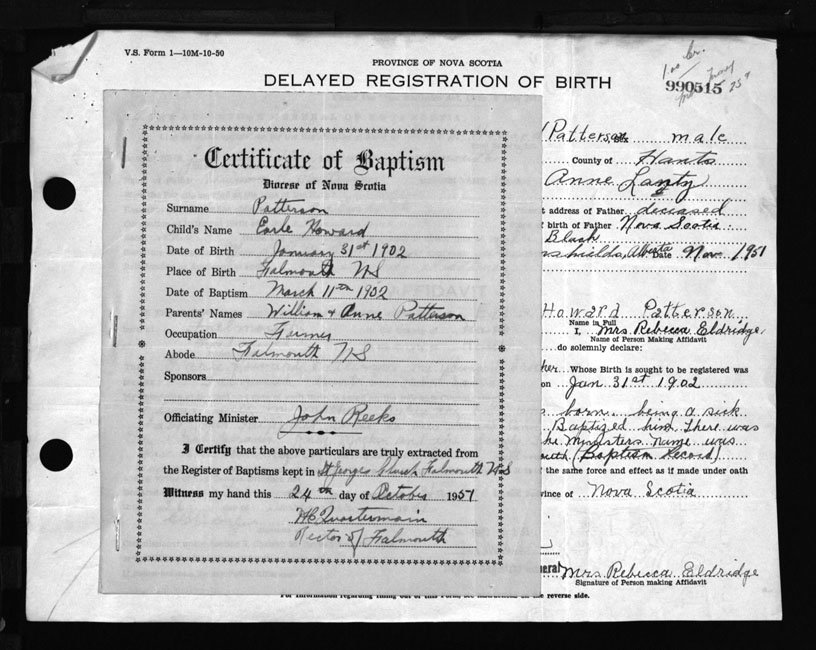 V.S. Form 1—10M-10-50
PROVINCE OF NOVA SCOTIA
DELAYED REGISTRATION OF BIRTH
990515
Patterson male
County of Hants
Anne Lanty
address of Father deceased
birth of Father Nova Scotia
Black
Alberta Date Nov. 1951
Howard Patterson
Name in Full
I, Mrs Rebecca Eldridge
Name of Person Making Affidavit
do solemnly declare:
Whose Birth is sought to be registered was
on Jan 31st 1902
born. being a sick
Baptized him. There was
he Ministers Name was
(Baptism Record)
the same force and effect as if made under oath
Province of Nova Scotia
Mrs Rebecca Eldridge
Signature of Person making Affidavit
For information regarding filling out of this Form, see reverse side.
Certificate of Baptism
Diocese of Nova Scotia
Surname Patterson
Child's Name Earle Howard
Date of Birth January 31st 1902
Place of Birth Falmouth NS
Date of Baptism March 11th 1902
Parents' Names William & Anne Patterson
Occupation Farmer
Abode Falmouth NS
Sponsors
Officiating Minister John Reeks
I Certify that the above particulars are truly extracted from
the Register of Baptisms kept in St Georges Church Falmouth NS
Witness my hand this 24th day of October 1951
Quartermain
Rector of Falmouth